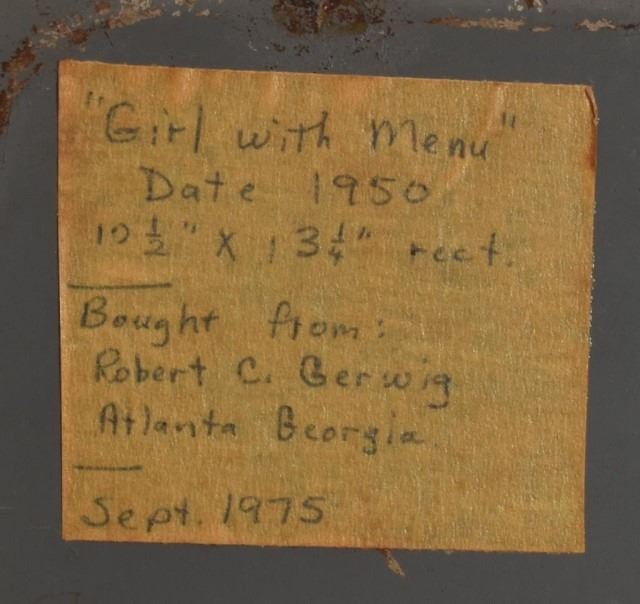 "Girl with Menu"
Date 1950
10 ½" X 13¼" rect.
Bought from:
Robert C. Gerwig
Atlanta Georgia.
Sept. 1975